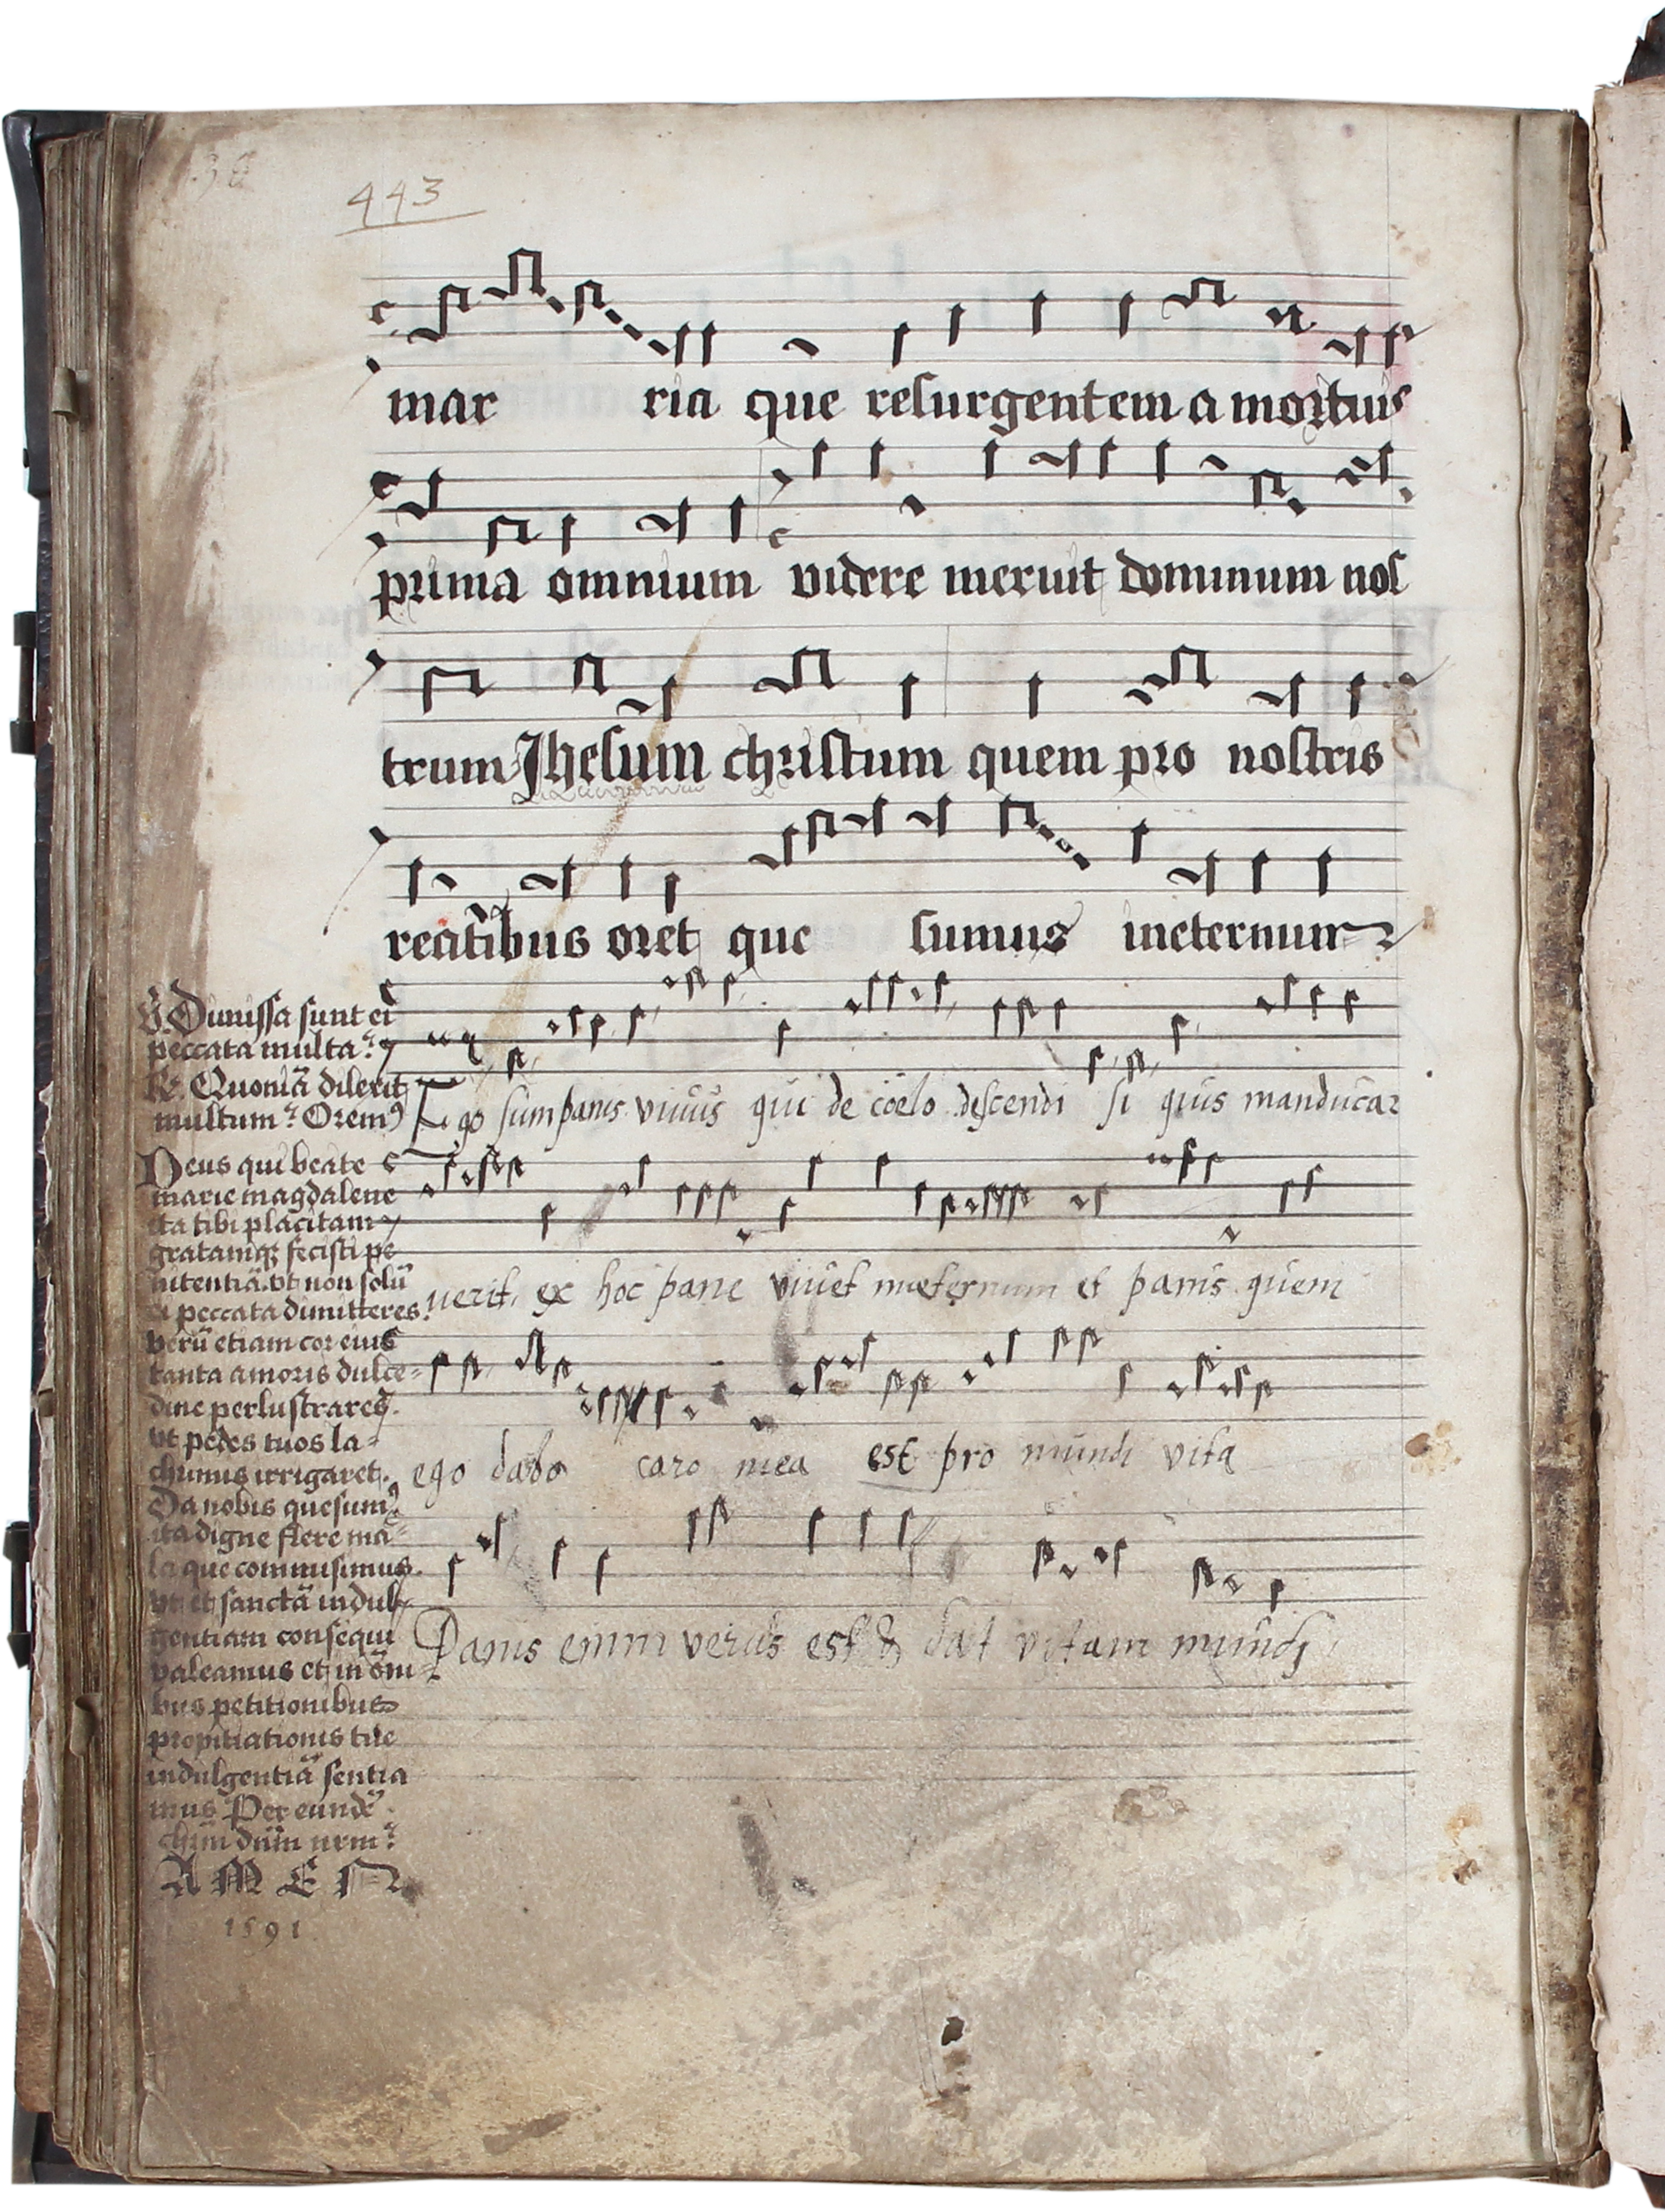 443
mar ria que resurgentem a mortuis
prima omnium videre meruit dominum nos
trum Jhesum christum quem pro nostris
reatibus oret que sumus ineternum
V. Dimissa sunt ei
peccata multa
R. Quoniā dilexit
multum Oremꝰ
Deus qui beate
marie magdalene
ita tibi placitam
gratamqꝫ fecisti pe
nitentiā. vt non solū
ei peccata dimitteres.
verū etiam cor eius
tanta amoris dulce=
dine perlustrares.
vt pedes tuos la=
chrimis irrigaret.
Da nobis quesumꝰ
ita digne flere ma=
la que commisimus.
vt et sanctā indul=
gentiam consequi
valeamus et in om̄i=
bus petitionibus
propitiationis tue
indulgentiā sentia
mus Per eundē
chr̄m dūm nr̄m
AMEN
1591
Ego sum panis viuus qui de coelo descendi si quis manducaz
uerit, ex hoc pane viuet ineternum et panis quem
ego dabo caro mea est pro mundi vita
Panis enim verus est & dat vitam mundj